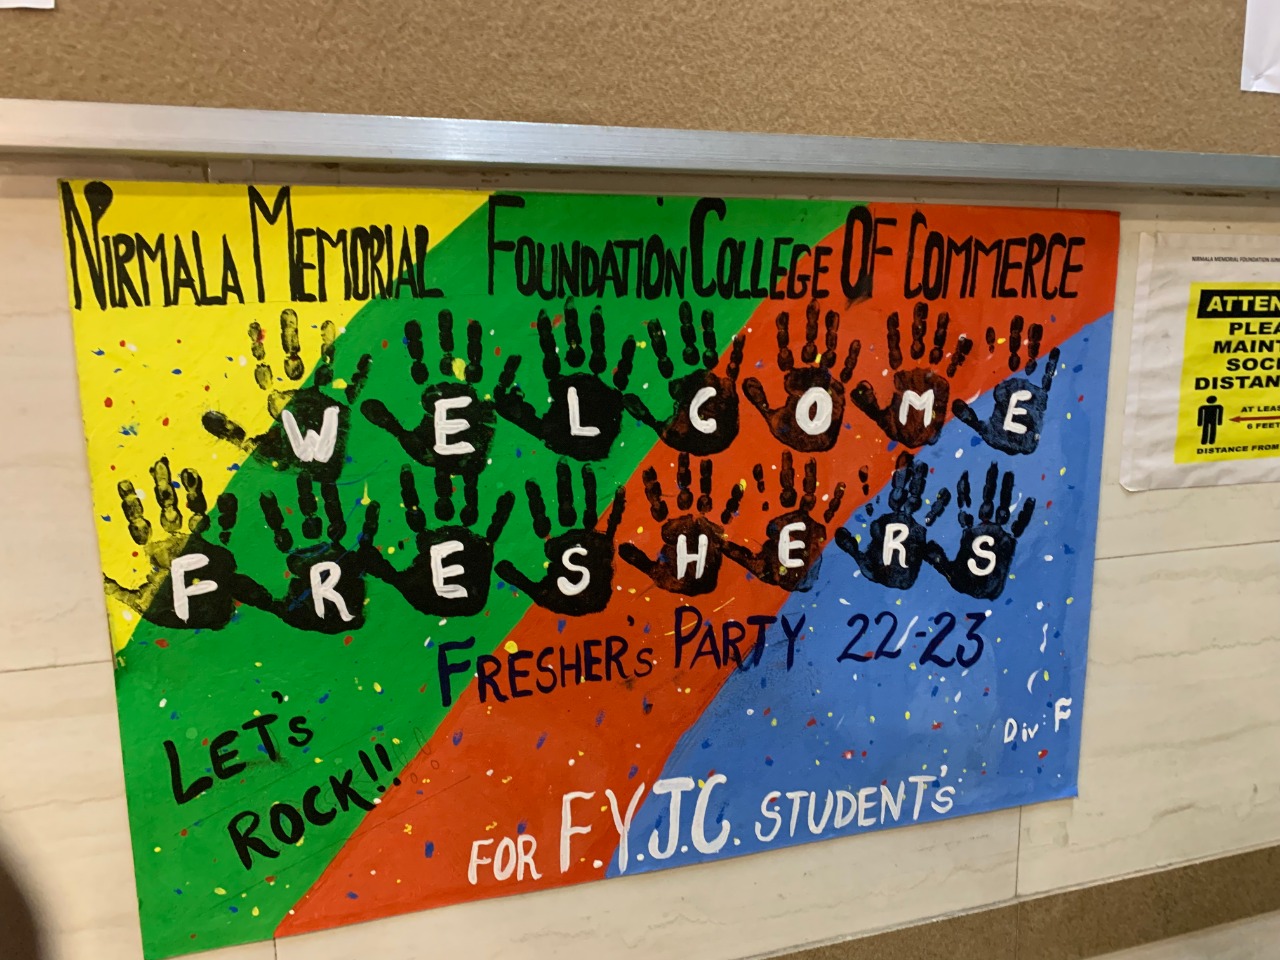 NIRMALA MEMORIAL FOUNDATION COLLEGE OF COMMERCE
WELCOME
FRESHERS
FRESHER'S PARTY 22-23
LET'S
ROCK!!
Div F
FOR F.Y.J.C. STUDENT'S
NIRMALA MEMORIAL FOUNDATION
ATTEN
PLEA
MAINT
SOCI
DISTAN
AT LEA
6 FEET
DISTANCE FROM